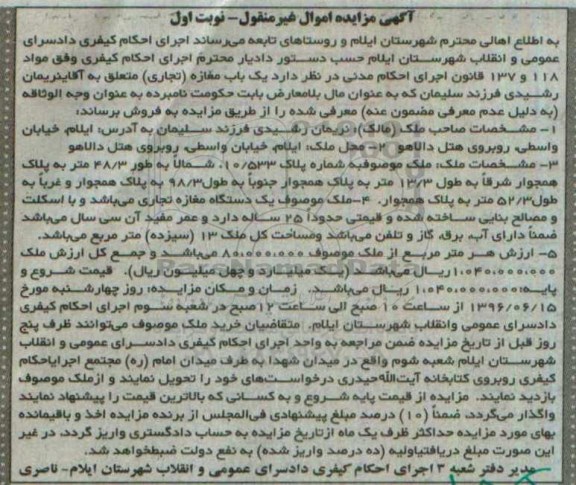 آگهی مزایده اموال غیرمنقول- نوبت اول
به اطلاع اهالی محترم شهرستان ایلام و روستاهای تابعه می‌رساند اجرای احکام کیفری دادسرای
عمومی و انقلاب شهرستان ایلام حسب دستور دادیار محترم اجرای احکام کیفری وفق مواد
۱۱۸ و ۱۳۷ قانون اجرای احکام مدنی در نظر دارد یک باب مغازه (تجاری) متعلق به آقای‌نریمان
رشیدی فرزند سلیمان که به عنوان مال بلامعارض بابت حکومت نامبرده به عنوان وجه الوثاقه
(به دلیل عدم معرفی مضمون عنه) معرفی شده را از طریق مزایده به فروش برساند:
۱- مشخصات صاحب ملک (مالک): نریمان رشیدی فرزند سلیمان به آدرس: ایلام، خیابان
واسطی، روبروی هتل دالاهو ۲- محل ملک: ایلام، خیابان واسطی، روبروی هتل دالاهو
۳- مشخصات ملک: ملک موصوف‌به شماره پلاک ۱۰/۵۳۳، شمالاً به طور ۴۸/۳ متر به پلاک
همجوار شرقاً به طول ۱۳/۳ متر به پلاک همجوار جنوباً به طول۹۸/۳ به پلاک همجوار و غرباً به
طول۵۲/۳ متر به پلاک همجوار. ۴-ملک موصوف یک دستگاه مغازه تجاری می‌باشد و با اسکلت
و مصالح بنایی ساخته شده و قیمتی حدوداً ۲۵ ساله دارد و عمر مفید آن سی سال می‌باشد
ضمناً دارای آب، برق، گاز و تلفن می‌باشد ومساحت کل ملک ۱۳ (سیزده) متر مربع می‌باشد.
۵- ارزش هر متر مربع از ملک موصوف ۸۰,۰۰۰,۰۰۰ می‌باشد و جمع کل ارزش ملک
۱,۰۴۰,۰۰۰,۰۰۰ریال می‌باشد. (یک میلیارد و چهل میلیون ریال). قیمت شروع و
پایه:۱,۰۴۰,۰۰۰,۰۰۰ ریال می‌باشد. زمان و مکان مزایده: روز چهارشنبه مورخ
۱۳۹۶/۰۶/۱۵ از ساعت ۱۰ صبح الی ساعت ۱۲صبح در شعبه سوم اجرای احکام کیفری
دادسرای عمومی وانقلاب شهرستان ایلام. متقاضیان خرید ملک موصوف می‌توانند ظرف پنج
روز قبل از تاریخ مزایده ضمن مراجعه به واحد اجرای احکام کیفری دادسرای عمومی و انقلاب
شهرستان ایلام شعبه شوم واقع در میدان شهدا به طرف میدان امام (ره) مجتمع اجرای‌احکام
کیفری روبروی کتابخانه آیت‌الله‌حیدری درخواست‌های خود را تحویل نمایند و ازملک موصوف
بازدید نمایند. مزایده از قیمت پایه شروع و به کسانی که بالاترین قیمت را پیشنهاد نمایند
واگذار می‌گردد، ضمناً (۱۰) درصد مبلغ پیشنهادی فی‌المجلس از برنده مزایده اخذ و باقیمانده
بهای مورد مزایده حداکثر ظرف یک ماه ازتاریخ مزایده به حساب دادگستری واریز گردد، در غیر
این صورت مبلغ دریافتیاولیه (ده درصد واریز شده) به نفع دولت ضبط‌خواهد شد.
مدیر دفتر شعبه ۳ اجرای احکام کیفری دادسرای عمومی و انقلاب شهرستان ایلام- ناصری